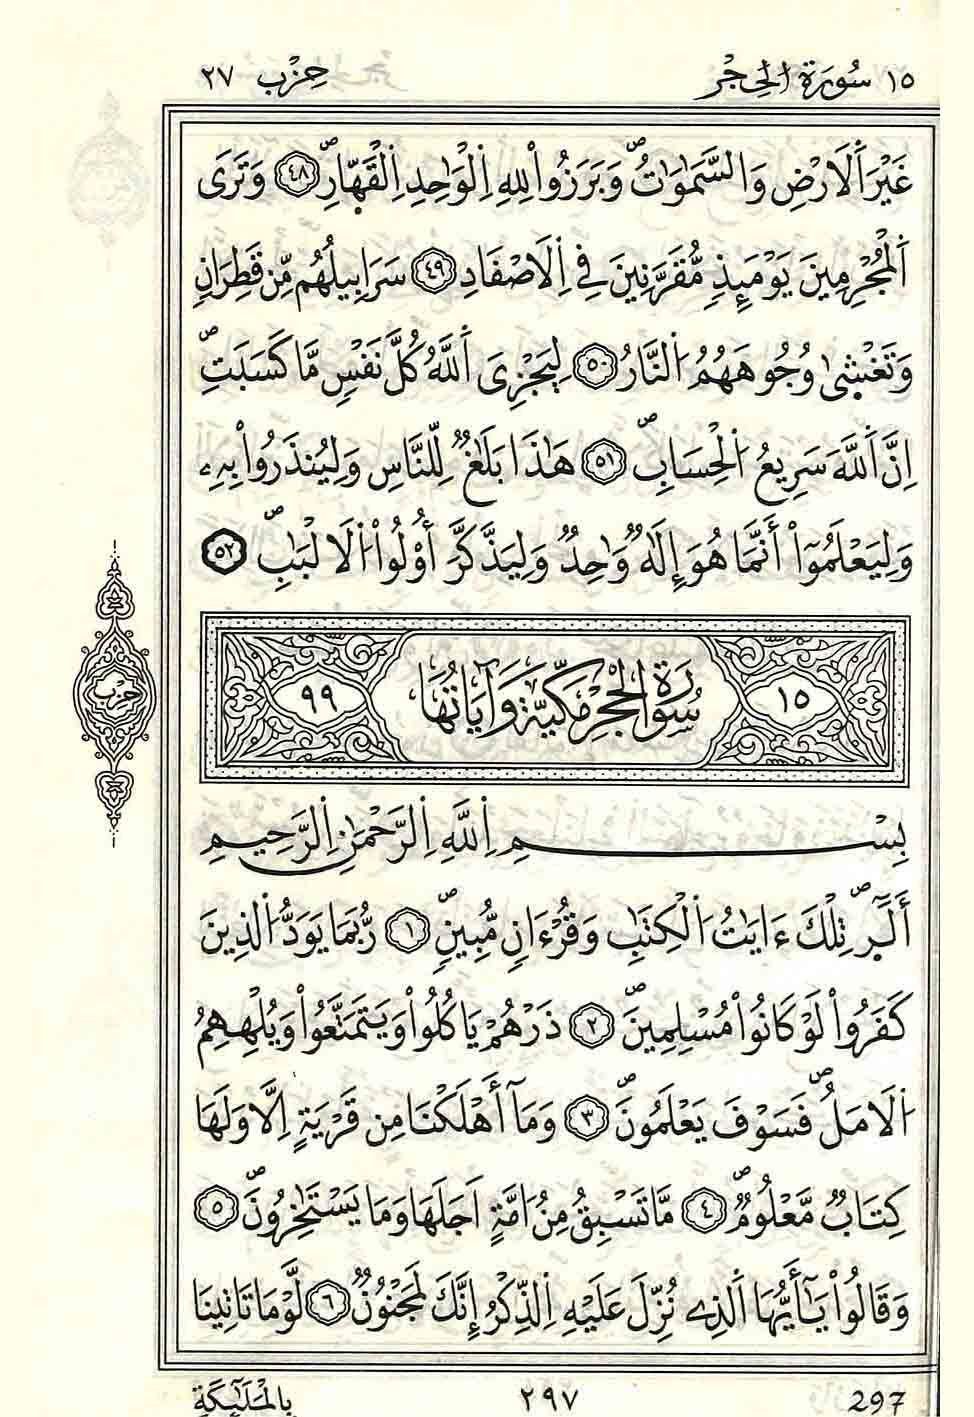 ١٥ سُورَةُ الحِجْر حِزْب ٢٧
غَيْرَ اَ۬لَارْضِ وَالسَّمَٰوَٰتُۖ وَبَرَزُواْ لِلهِ اِ۬لْوَٰحِدِ اِ۬لْقَهّ۪ارِۖ ٤٨ وَتَرَى
اَ۬لْمُجْرِمِينَ يَوْمَئِذٖ مُّقَرَّنِينَ فِے اِ۬لَاصْفَادِ ٤٩ سَرَابِيلُهُم مِّن قَطِرَانٖ
وَتَغْش۪ىٰ وُجُوهَهُمُ اُ۬لنَّارُ ٥٠ لِيَجْزِىَ اَ۬للَّهُ كُلَّ نَفْسٖ مَّا كَسَبَتِۖ
اِنَّ اَ۬للَّهَ سَرِيعُ اُ۬لْحِسَابِۖ ٥١ هَٰذَا بَلَٰغٞ لِّلنَّاسِ وَلِيُنذَرُواْ بِهِۦ
وَلِيَعْلَمُوٓاْ أَنَّمَا هُوَ إِلَٰهٞ وَٰحِدٞ وَلِيَذَّكَّرَ أُوْلُواْ اُ۬لَالْبَٰبِۖ ٥٢
١٥ سُورَةُ الحِجْرِ مَكِّيَّة وَآيَاتُهَا ٩٩
حزب
بِسْمِ اِ۬للَّهِ اِ۬لرَّحْمَٰنِ اِ۬لرَّحِيمِ
أَلَٓر۪ۖ تِلْكَ ءَايَٰتُ اُ۬لْكِتَٰبِ وَقُرْءَانٖ مُّبِينٖۖ ١ رُّبَمَا يَوَدُّ اُ۬لذِينَ
كَفَرُواْ لَوْ كَانُواْ مُسْلِمِينَۖ ٢ ذَرْهُمْ يَاكُلُواْ وَيَتَمَتَّعُواْ وَيُلْهِهِمُ
اُ۬لَامَلُۖ فَسَوْفَ يَعْلَمُونَۖ ٣ وَمَآ أَهْلَكْنَا مِن قَرْيَةٍ اِلَّا وَلَهَا
كِتَابٞ مَّعْلُومٞۖ ٤ مَّا تَسْبِقُ مِنُ امَّةٍ اَجَلَهَا وَمَا يَسْتَٰخِرُونَۖ ٥
وَقَالُواْ يَٰٓأَيُّهَا اَ۬لذِے نُزِّلَ عَلَيْهِ اِ۬لذِّكْرُ إِنَّكَ لَمَجْنُونٞۖ ٦ لَّوْمَا تَاتِينَا
بِالْمَلَٰٓئِكَةِ ٢٩٧ 297